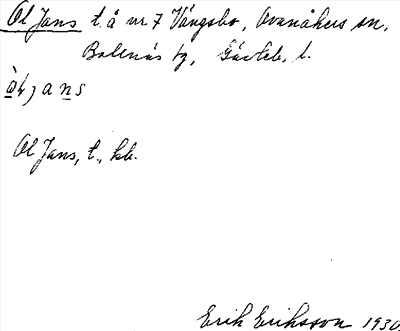 Ol Jans t. å nr 7 Vängsbo, Ovanåkers sn,
Bollnäs tg, Gävleb. l.
Ol Jans, t., kb.
Erik Eriksson 1930.